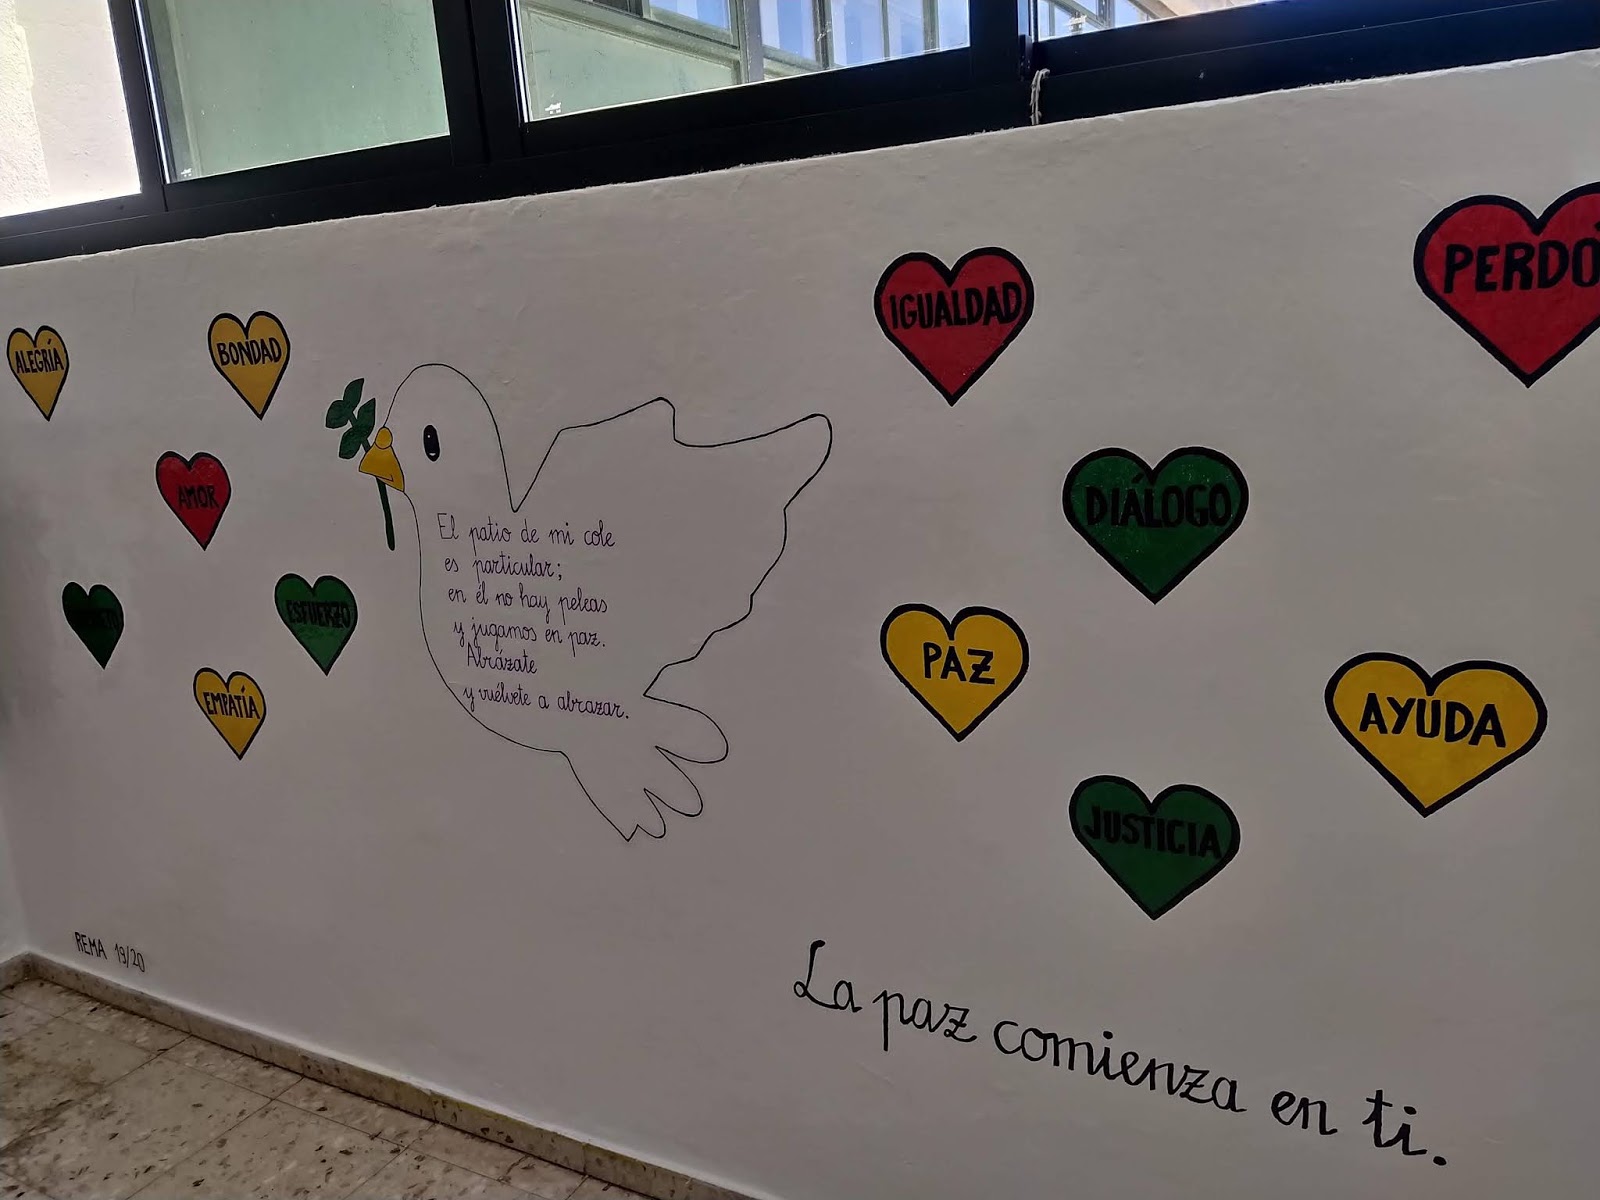 ALEGRÍA
BONDAD
AMOR
ESFUERZO
EMPATÍA
El patio de mi cole
es particular;
en él no hay peleas
y jugamos en paz.
Abrázate
y vuélvete a abrazar.
IGUALDAD
PERDÓ
DIÁLOGO
PAZ
AYUDA
JUSTICIA
REMA 19/20
La paz comienza en ti.